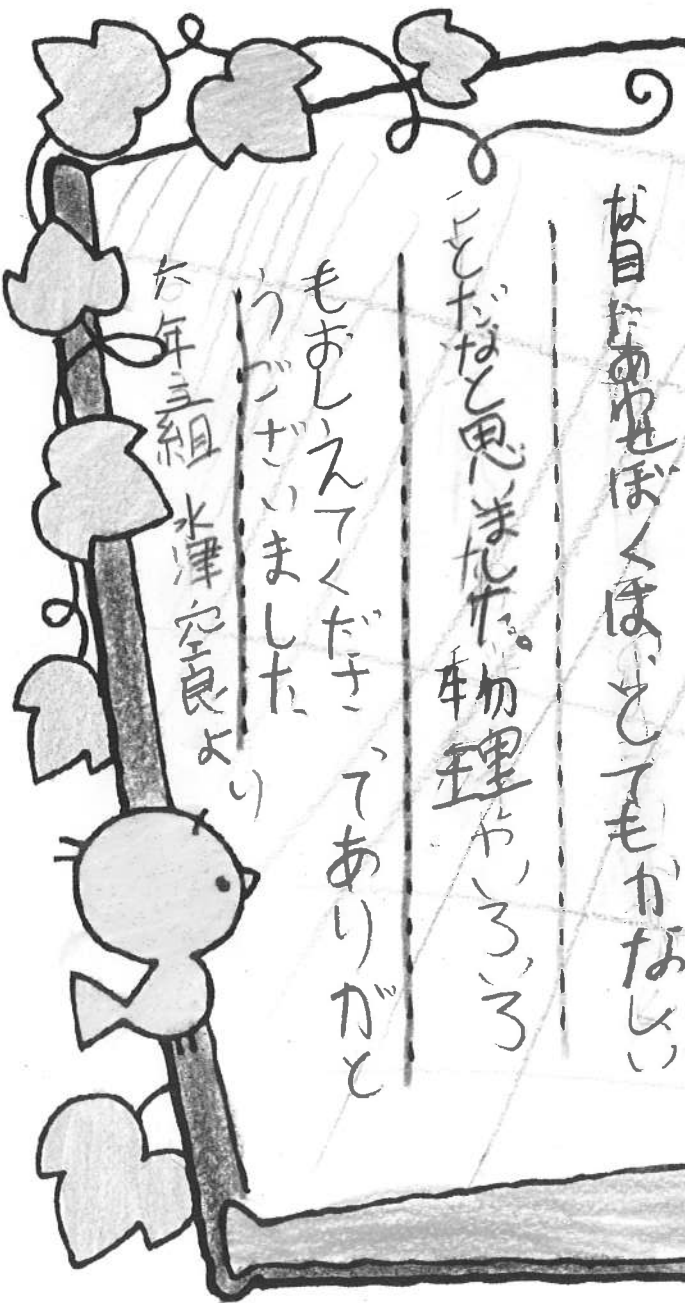 な目にあわせぼくは、とても��なしい
ことだなと思いました。物理やいろいろ
もおしえてくださってありがと
うございました
六年三組 水津空良より